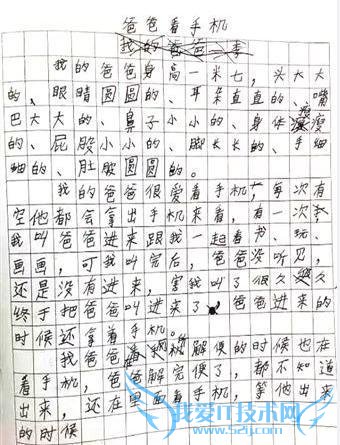 爸爸看手机
我的爸爸高一米七，头大大
的、眼睛圆圆的、耳朵直直的、嘴
巴大大的、鼻子小小的、身体瘦瘦
的、屁股小小的、脚长长的、手细
细的、肚股圆圆的。
我的爸爸很爱看手机，每次有
空他都会拿出手机来看，有一次
我叫爸爸进来跟我一起看书、玩、
画画，可我叫完后，爸爸没听见，
还是没有进来，害我叫了很久
终于把爸爸叫进来了。爸爸进来的
时候还拿着手机。
我爸爸解便的时候也在
看手机，爸爸解完便了，都不知道
出来，还在里面看手机，等他出来
的时候
我爱IT技术网